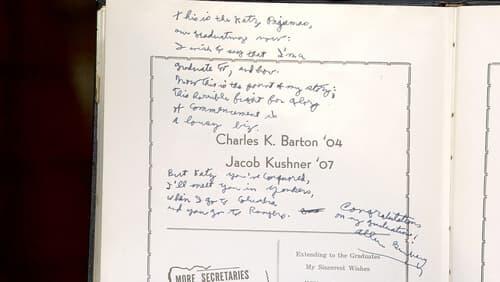 This is the Katz Pajamas,
our graduating now:
I wish to say that I'm a
graduate &, and how.
Now this is the point of my story;
This horrible fight for glory
At Commencement is
a lousy biz.
Charles K. Barton '04
Jacob Kushner '07
But Katz you've conquered,
I'll meet you in Yonkers,
when I go to Columbia
and you go to Rutgers.
Congratulations
on my graduation!
Allen Ginsberg
MORE SECRETARIES
Extending to the Graduates
My Sincerest Wishes